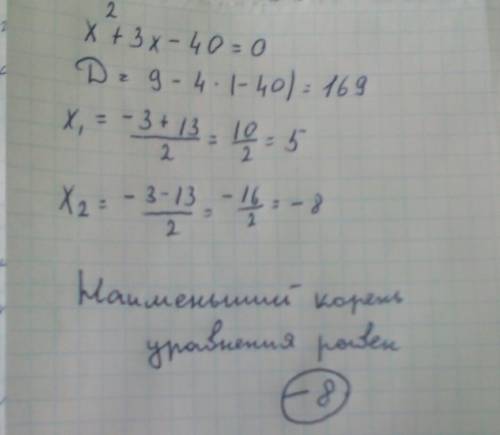 x² + 3x - 40 = 0
D = 9 - 4 · (-40) = 169
x₁ = (-3 + 13)/2 = 10/2 = 5
x₂ = (-3 - 13)/2 = -16/2 = -8
Наименьший корень
уравнения равен
-8